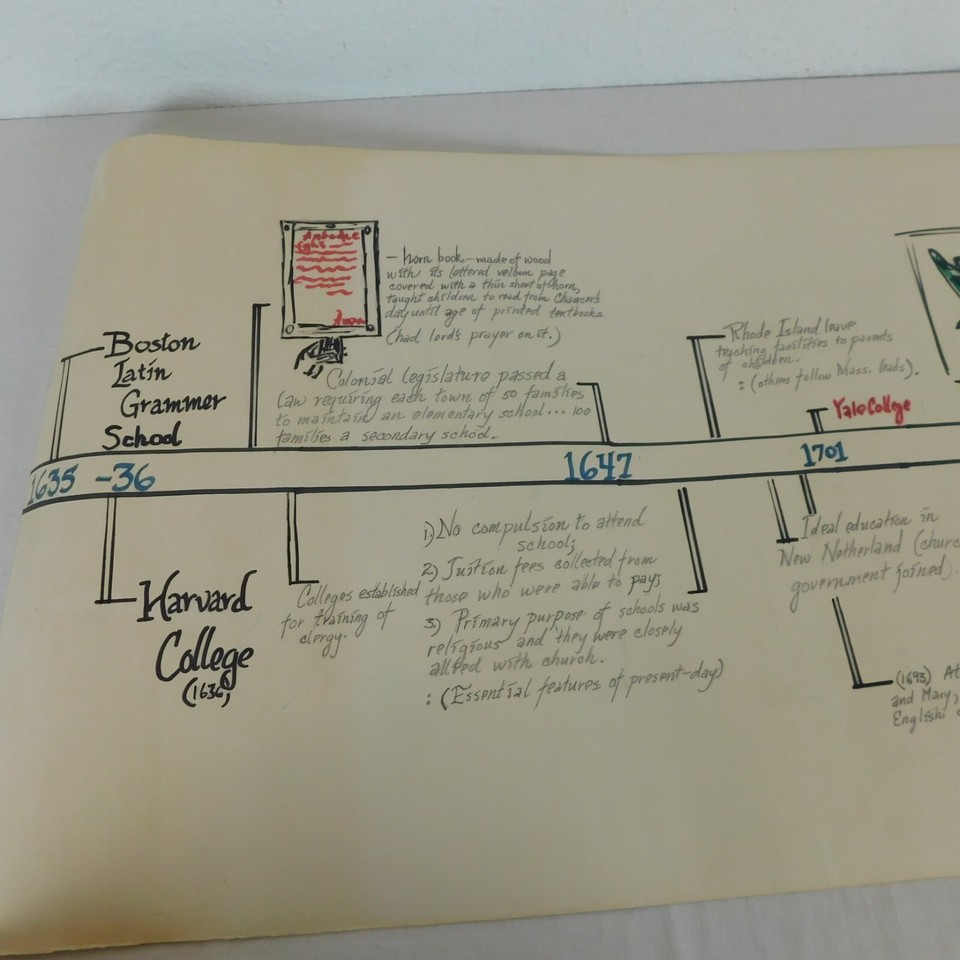 — horn book — made of wood
with its lettered vellum page
covered with a thin sheet of horn,
taught children to read from Chaucer's
day until age of printed textbooks.
(had lord's prayer on it.)
Boston
Latin
Grammer
School
Colonial legislature passed a
law requiring each town of 50 families
to maintain an elementary school... 100
families a secondary school.
Rhode Island leave
teaching facilities to parents
of children.
: (others follow Mass. leads).
Yale College
1635 -36
1647
1701
Harvard
College
(1636)
Colleges established
for training of
clergy.
1) No compulsion to attend
school;
2) Tuition fees collected from
those who were able to pay;
3) Primary purpose of schools was
religious and they were closely
allied with church.
: (Essential features of present-day)
Ideal education in
New Netherland (churc
government joined).
(1693) At
and Mary,
English